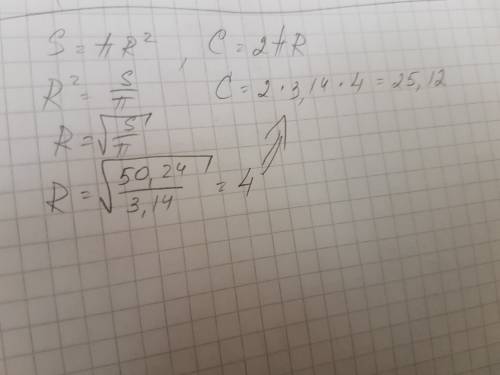 S = πR², C = 2πR
R² = S/π
C = 2 · 3,14 · 4 = 25,12
R = √(S/π)
R = √(50,24/3,14) = 4